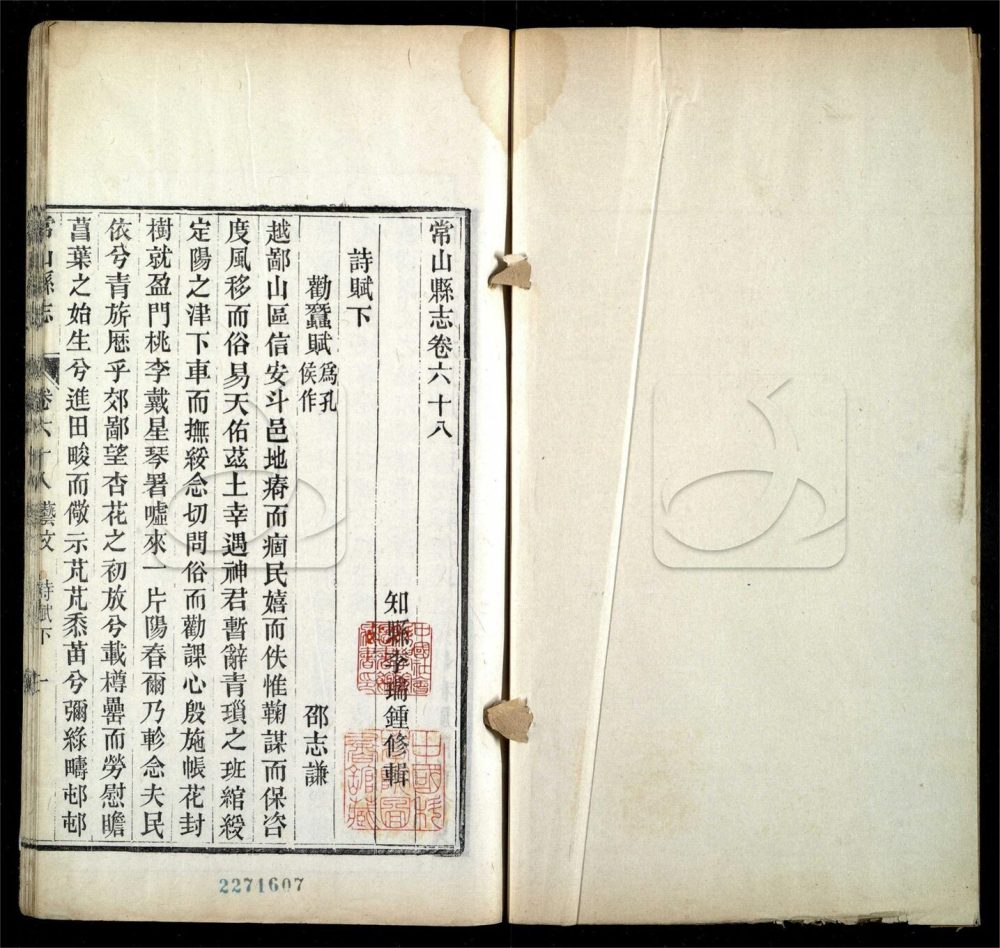 常山縣志卷六十八
知縣李瑞鍾修輯
詩賦下
勸蠶賦 爲孔侯作 邵志謙
越鄙山區信安斗邑地瘠而痼民嬉而佚惟鞠謀而保咨
度風移而俗易天佑茲土幸遇神君暫辭青瑣之班綰綬
定陽之津下車而撫綏念切問俗而勸課心殷施帳花封
樹就盈門桃李戴星琴署噓來一片陽春爾乃軫念夫民
依兮青旂歷乎郊鄙望杏花之初放兮載樽罍而勞慰瞻
菖葉之始生兮進田畯而儆示芃芃黍苗兮彌綠疇邨邨
常山縣志 卷六十八 藝文 詩賦下 一
2271607